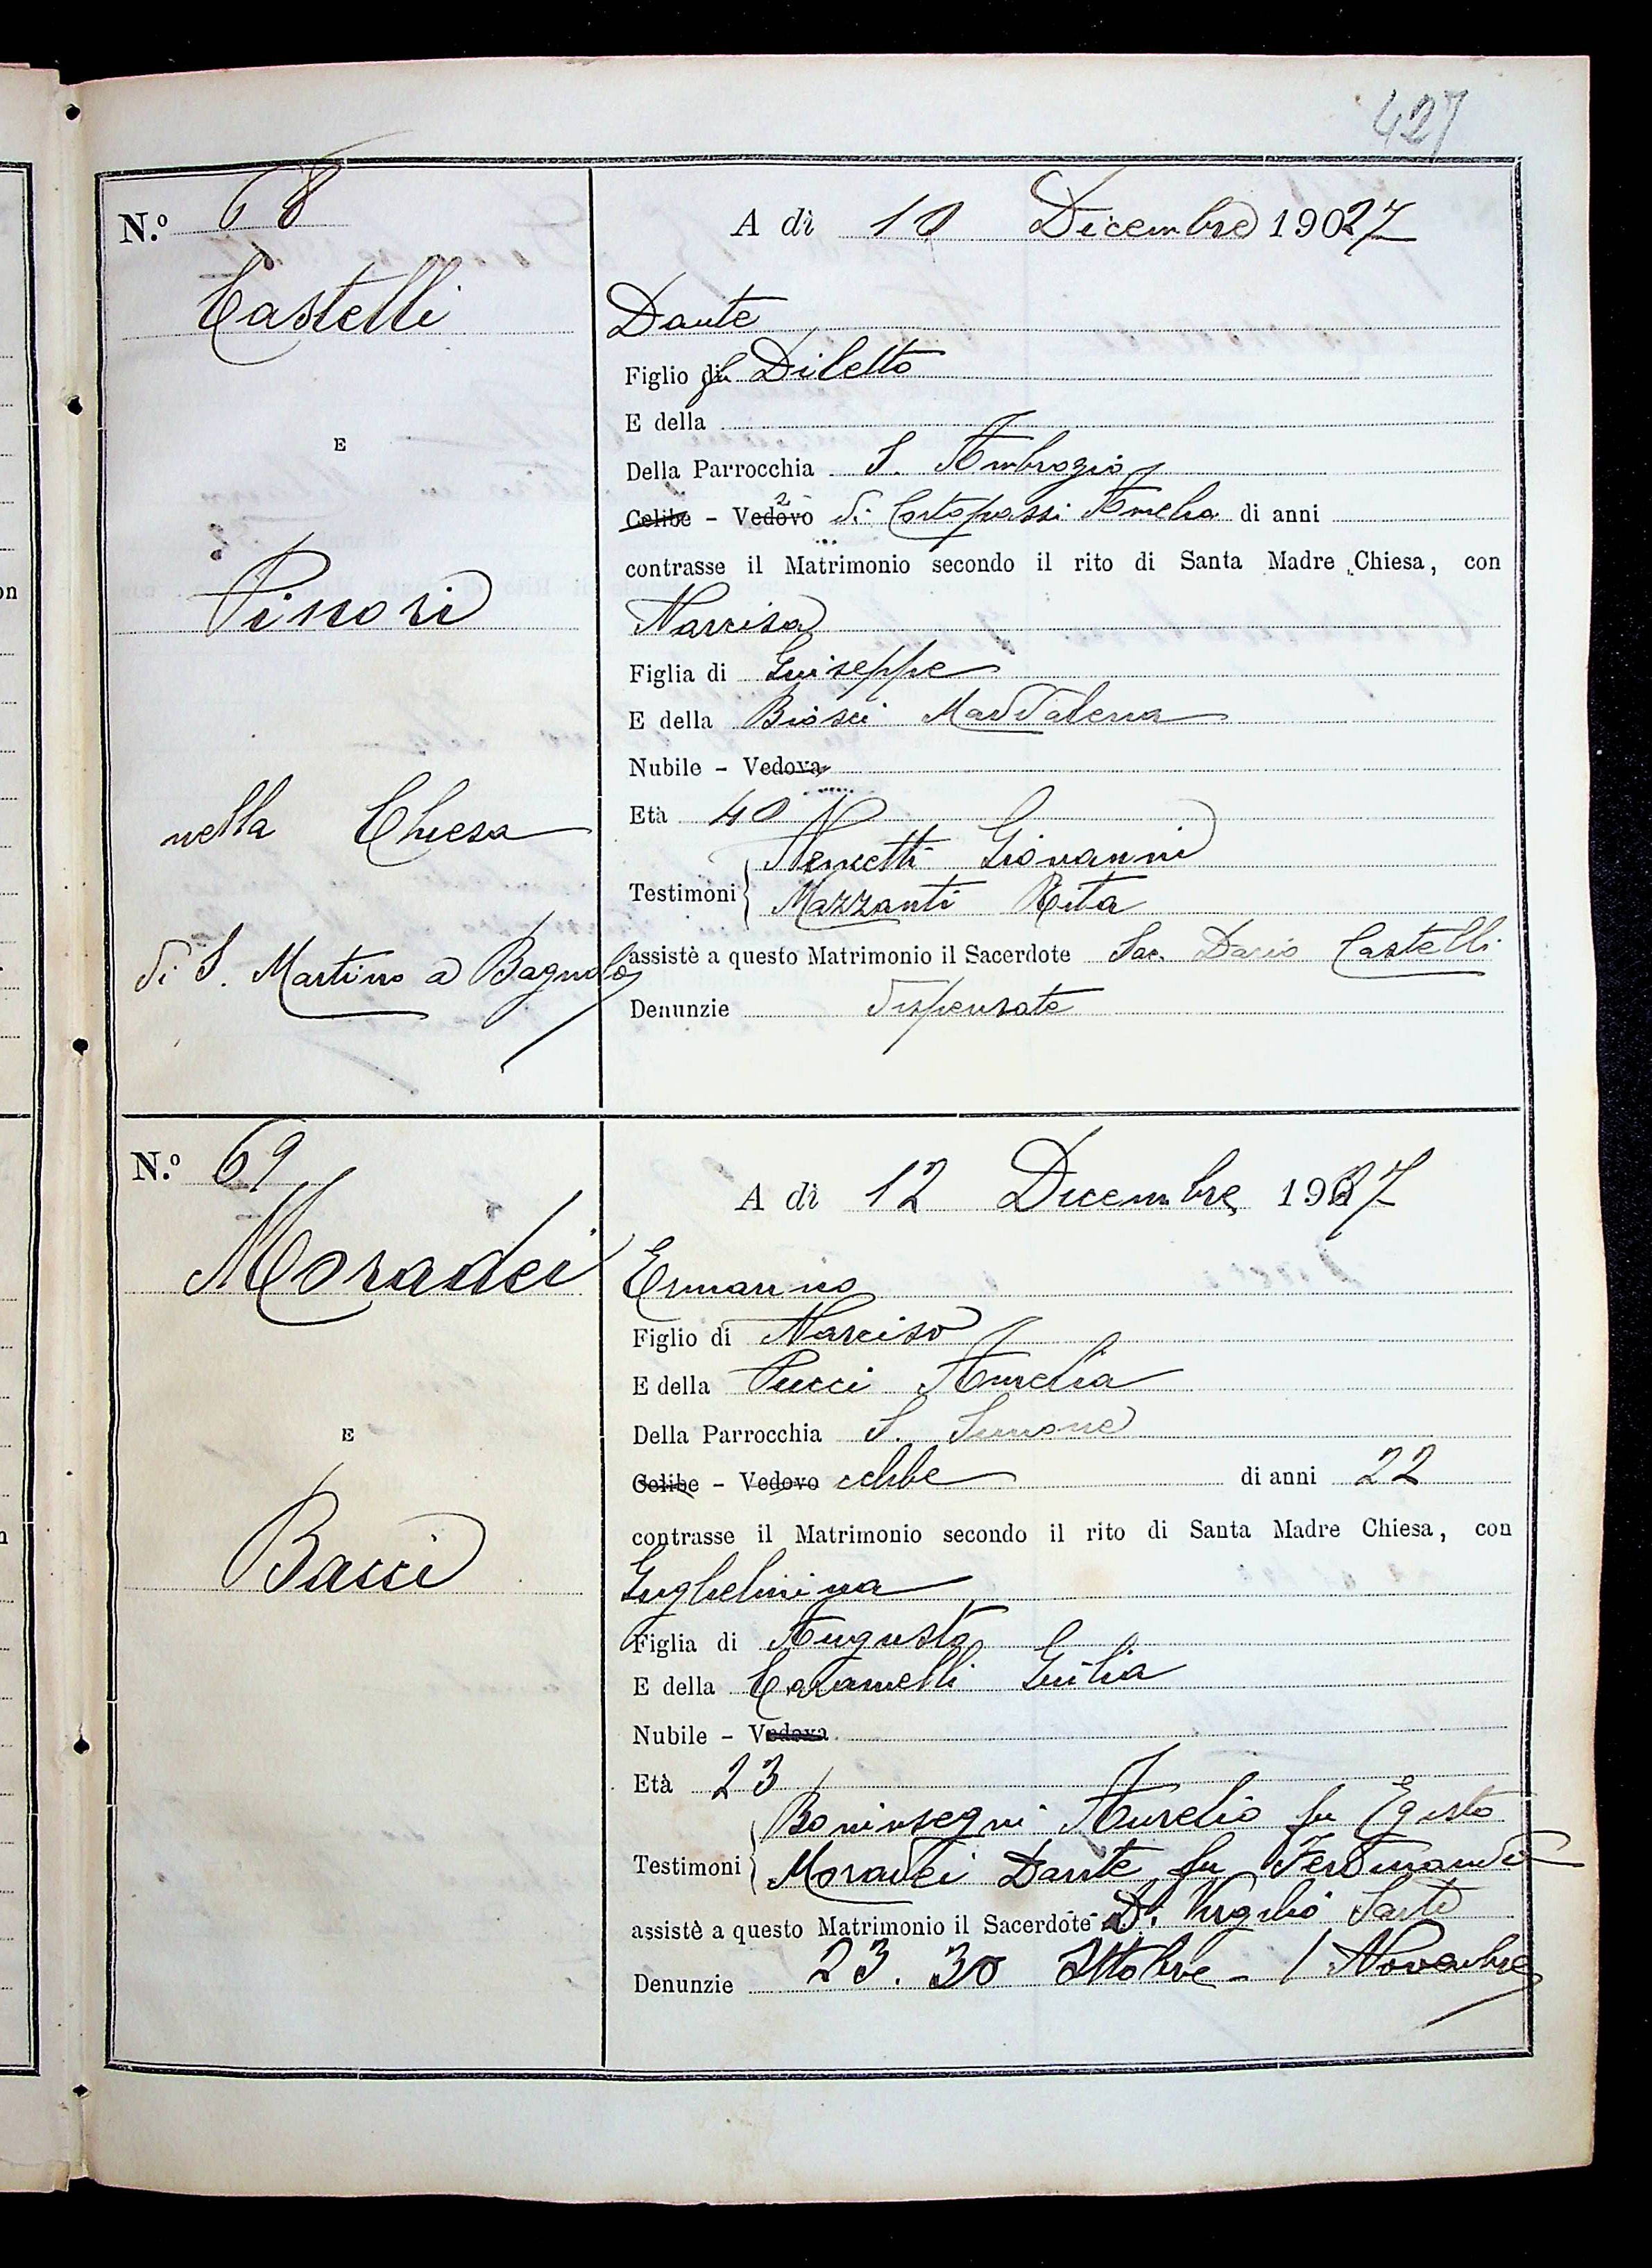 427
N.º 68
A dì 10 Dicembre 1927
Castelli
Dante
Figlio di Diletto
E della
E
Della Parrocchia S. Ambrogio
Celibe - Vedovo di Cortopassi Amelia di anni
contrasse il Matrimonio secondo il rito di Santa Madre Chiesa, con
Pinori
Narcisa
Figlia di Giuseppe
E della Biosci Maddalena
Nubile - Vedova
nella Chiesa
Età 40
Nencetti Giovanni
Testimoni
Mazzanti Rita
di S. Martino a Bagnolo
assistè a questo Matrimonio il Sacerdote Sac. Dario Castelli
Denunzie dispensate
N.º 69
A dì 12 Dicembre 1927
Moradei
Ermanno
Figlio di Narciso
E della Pucci Amelia
E
Della Parrocchia S. Simone
Celibe - Vedovo celibe di anni 22
contrasse il Matrimonio secondo il rito di Santa Madre Chiesa, con
Bacci
Guglielmina
Figlia di Augusto
E della Caramelli Giulia
Nubile - Vedova
Età 23
Boninsegni Aurelio fu Egisto
Testimoni
Moradei Dante fu Ferdinando
assistè a questo Matrimonio il Sacerdote D. Virgilio Sarti
Denunzie 23. 30 Ottobre - 1 Novembre